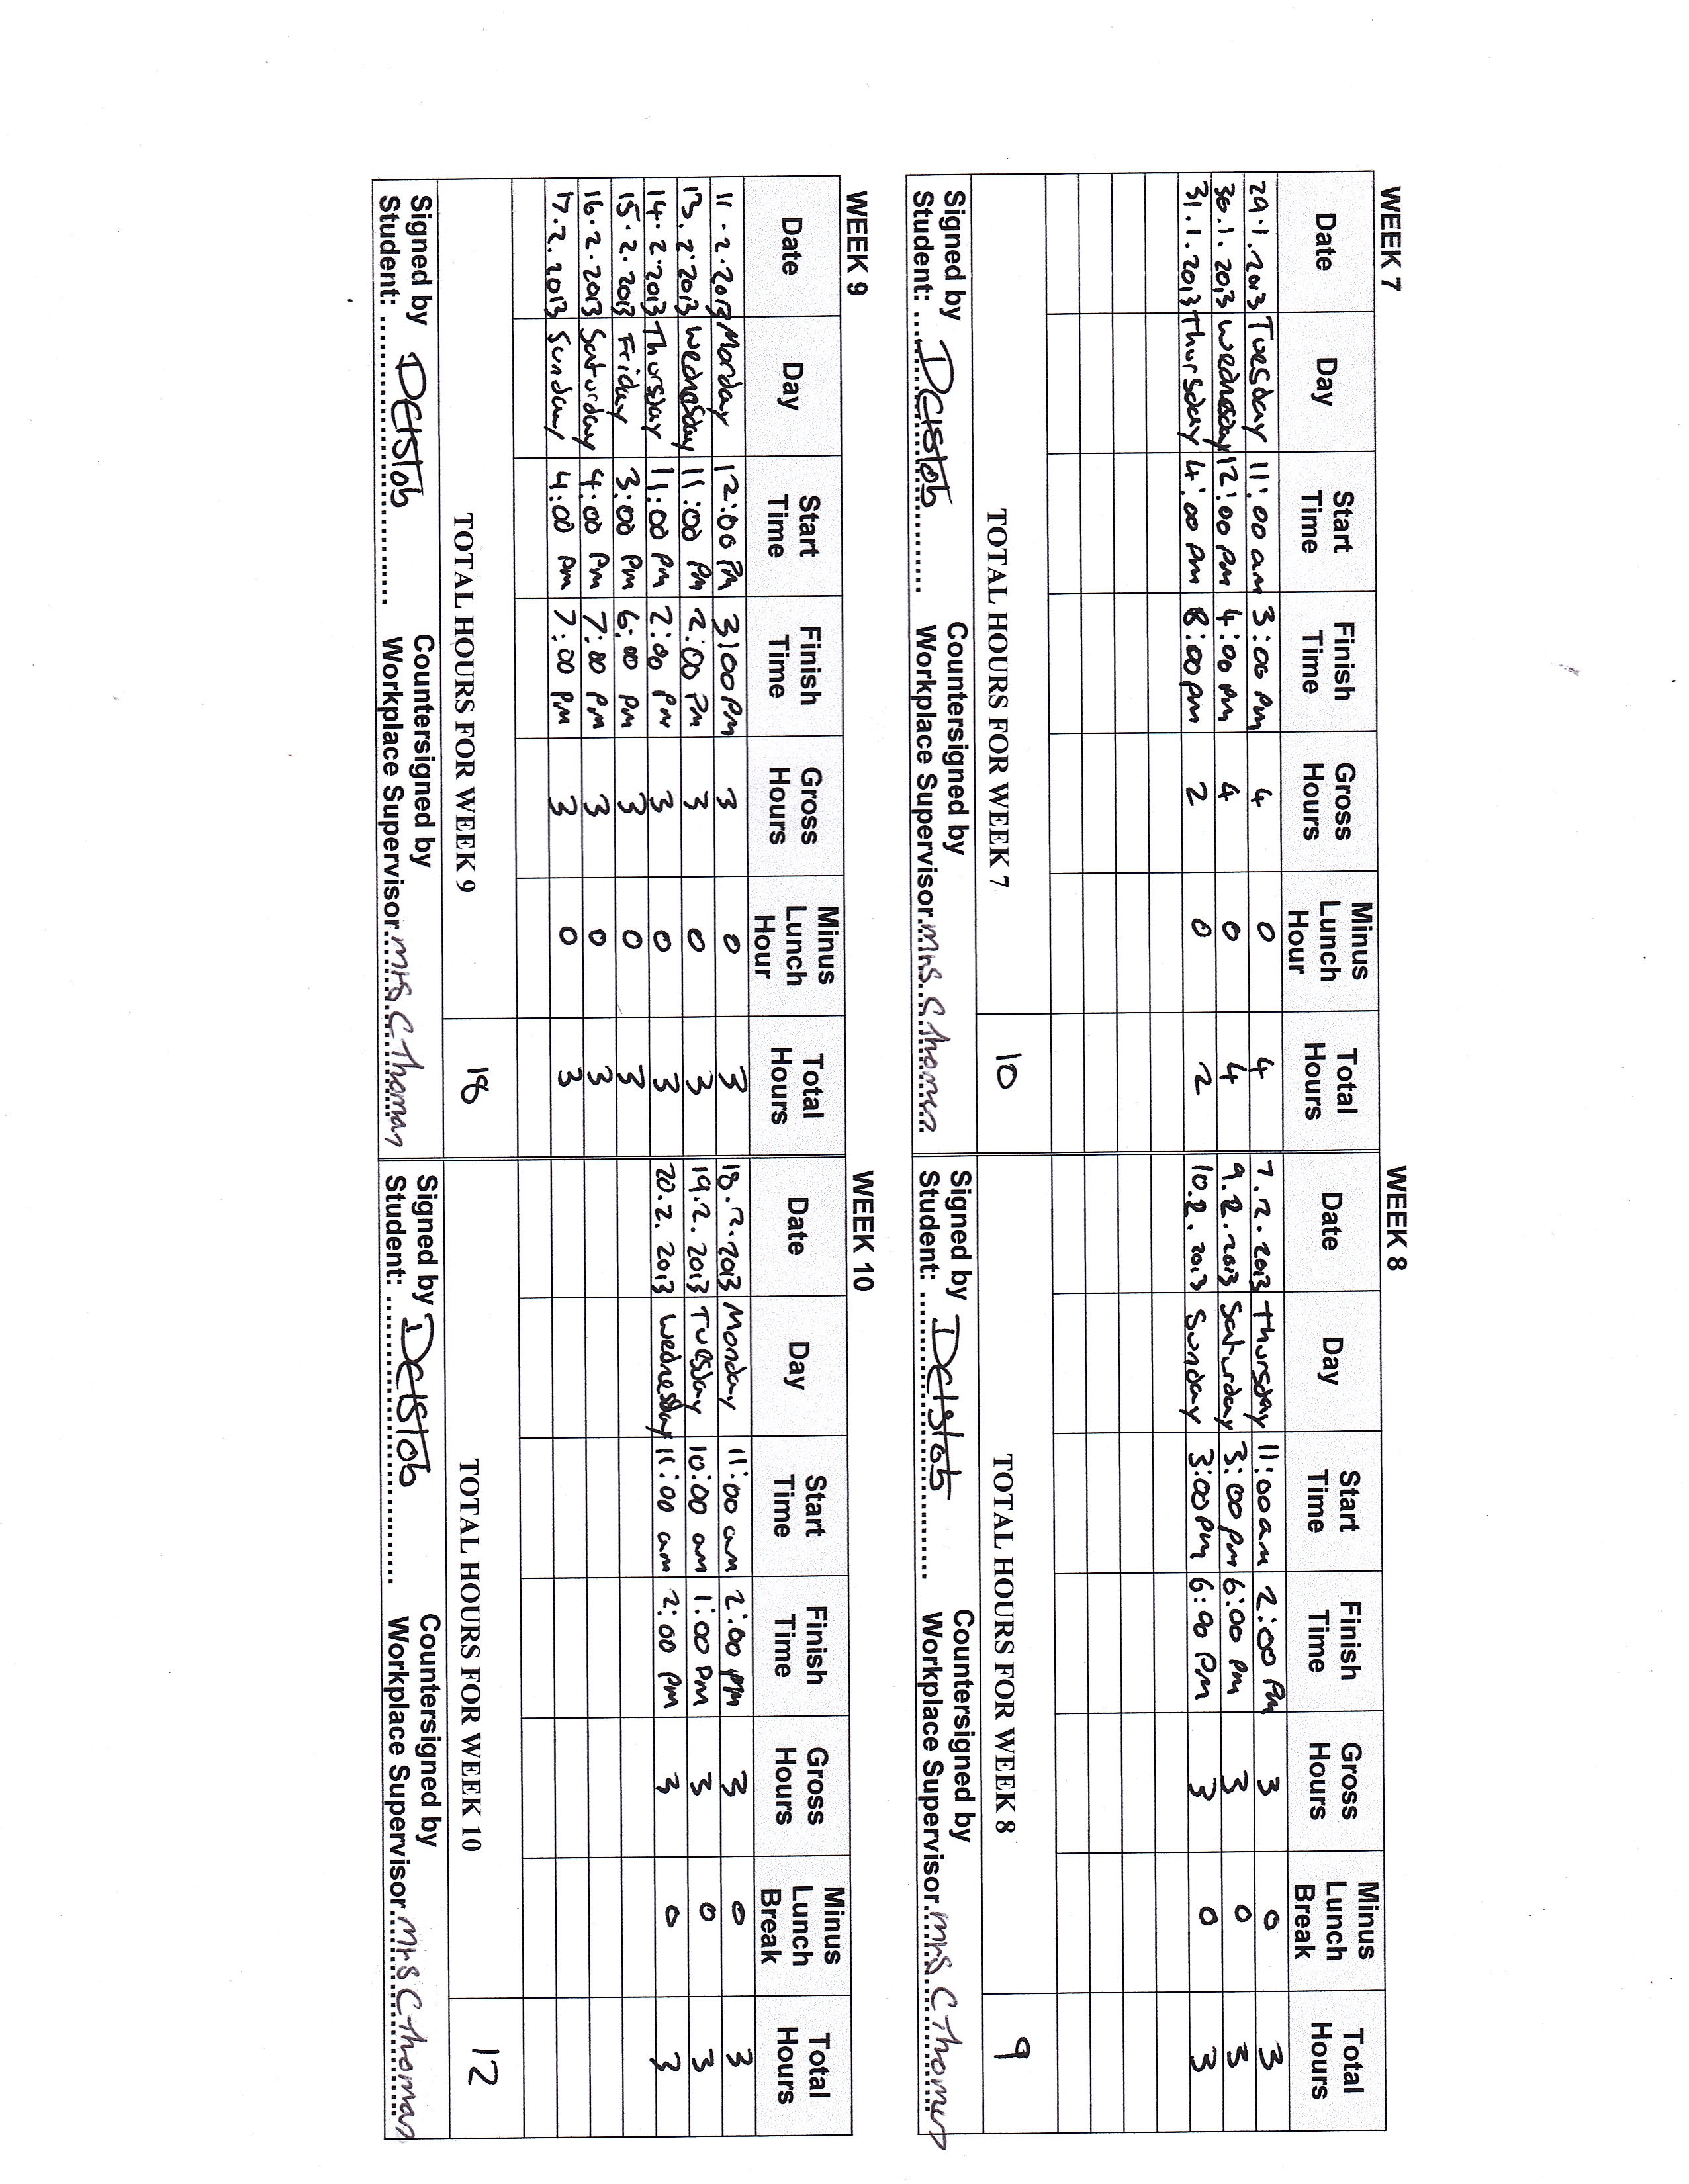 WEEK 7
Date Day Start Time Finish Time Gross Hours Minus Lunch Hour Total Hours
29.1.2013 Tuesday 11:00 am 3:00 pm 4 0 4
30.1.2013 wednesday 12:00 pm 4:00 pm 4 0 4
31.1.2013 Thursday 4:00 pm 8:00 pm 2 0 2
TOTAL HOURS FOR WEEK 7 10
Signed by Countersigned by
Student: Workplace Supervisor mrs C Thomas
WEEK 8
Date Day Start Time Finish Time Gross Hours Minus Lunch Break Total Hours
7.2.2013 Thursday 11:00 am 2:00 pm 3 0 3
9.2.2013 Saturday 3:00 pm 6:00 pm 3 0 3
10.2.2013 Sunday 3:00 pm 6:00 pm 3 0 3
TOTAL HOURS FOR WEEK 8 9
Signed by Countersigned by
Student: Workplace Supervisor mrs C Thomas
WEEK 9
Date Day Start Time Finish Time Gross Hours Minus Lunch Hour Total Hours
11.2.2013 Monday 12:00 Pm 3:00 Pm 3 0 3
13.2.2013 wednesday 11:00 Pm 2:00 Pm 3 0 3
14.2.2013 Thursday 11:00 Pm 2:00 Pm 3 0 3
15.2.2013 Friday 3:00 Pm 6:00 Pm 3 0 3
16.2.2013 Saturday 4:00 Pm 7:00 Pm 3 0 3
17.2.2013 Sunday 4:00 Pm 7:00 Pm 3 0 3
TOTAL HOURS FOR WEEK 9 18
Signed by Countersigned by
Student: Workplace Supervisor mrs C Thomas
WEEK 10
Date Day Start Time Finish Time Gross Hours Minus Lunch Break Total Hours
18.2.2013 Monday 11:00 am 2:00 pm 3 0 3
19.2.2013 Tuesday 10:00 am 1:00 Pm 3 0 3
20.2.2013 wednesday 11:00 am 2:00 Pm 3 0 3
TOTAL HOURS FOR WEEK 10 12
Signed by Countersigned by
Student: Workplace Supervisor mrs C Thomas